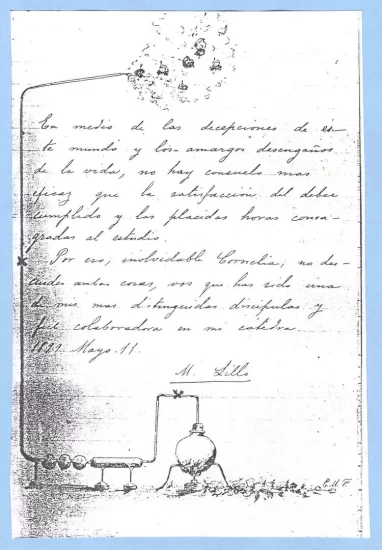 En medio de las decepciones de es-
te mundo y los amargos desengaños
de la vida, no hay consuelo mas
eficaz que la satisfacción del deber
cumplido y las placidas horas consa-
gradas al estudio.
Por eso, inolvidable Cornelia, no des-
cuides ambas cosas, vos que has sido una
de mis mas distinguidas discípulas y
fiel colaboradora en mi cátedra.
Mayo 11.
M. Lillo